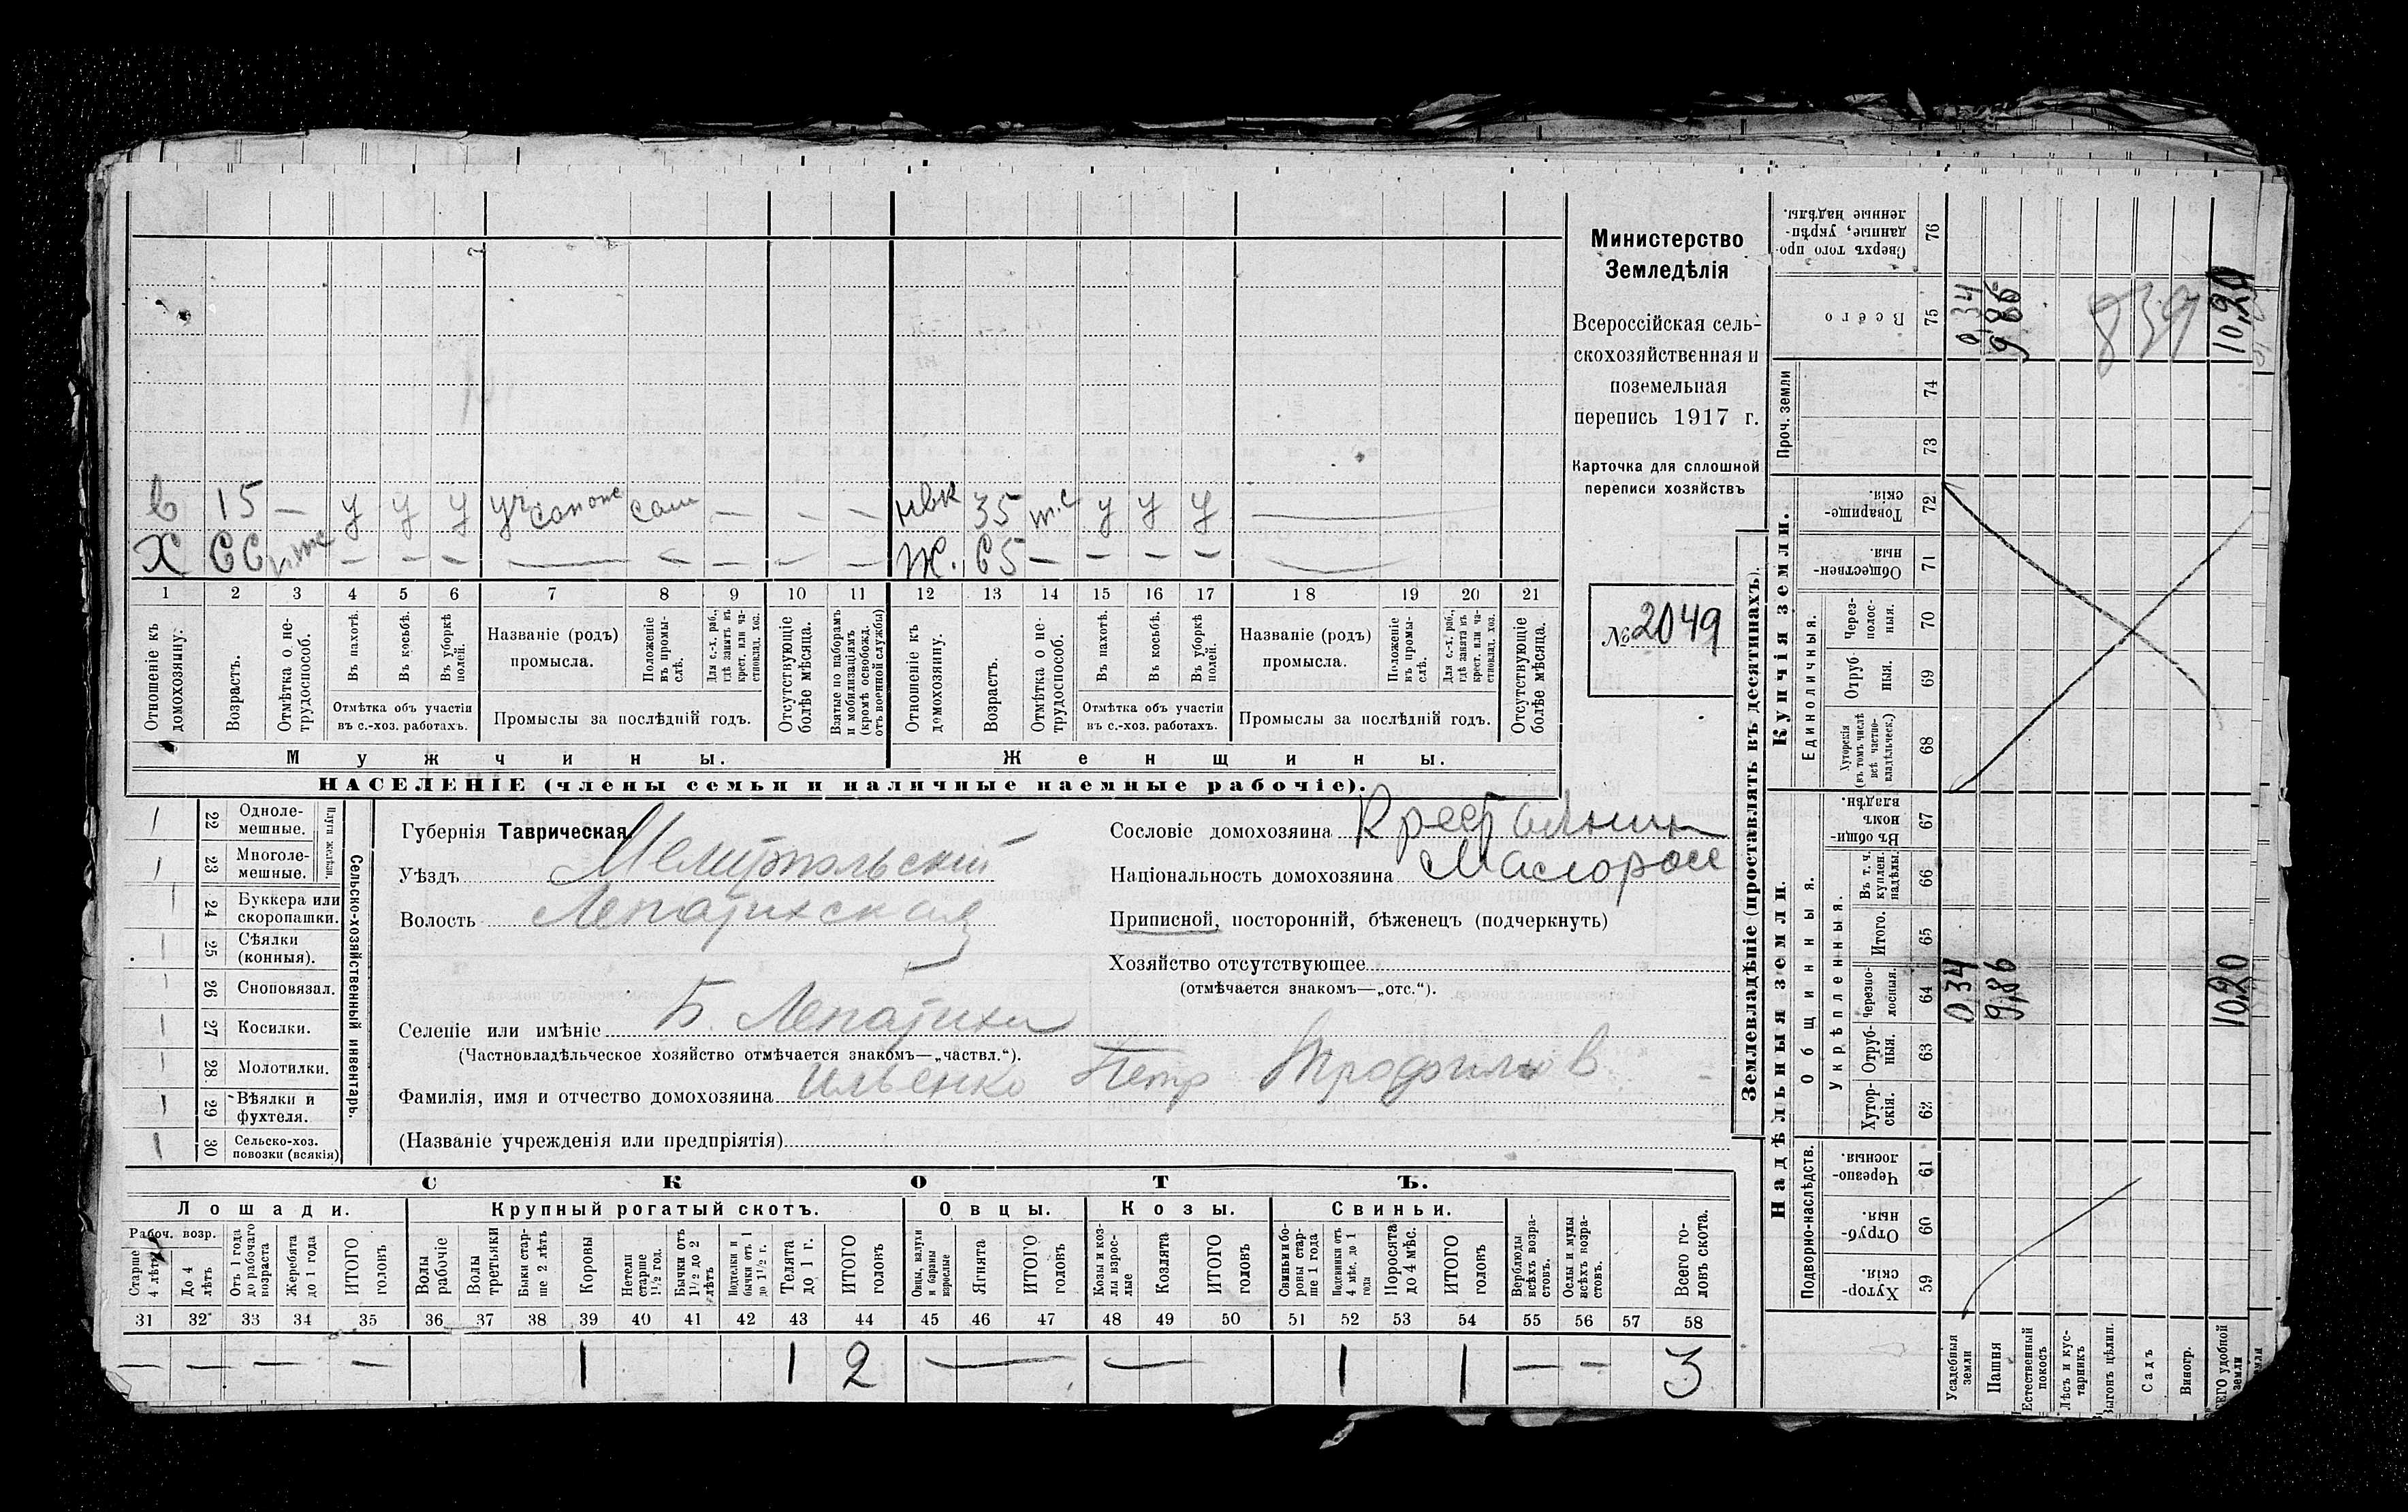 в 15 — у у у уч сапож сам — — — нвк 35 у у у —
Х 66 — — — — — — — — Ж. 65 — — — — —
1 2 3 4 5 6 7 8 9 10 11 12 13 14 15 16 17 18 19 20 21
Отношеніе къ домохозяину.
Возрастъ.
Отмѣтка о не-
трудоспособ.
Въ пахотѣ.
Въ косьбѣ.
Въ уборкѣ
полей.
Отмѣтка объ участіи
въ с.-хоз. работахъ.
Названіе (родъ)
промысла.
Положеніе
въ промы-
слѣ.
Для с.-х. раб.,
гдѣ занятъ въ
крест. или ча-
стновлад. хоз.
Промыслы за послѣдній годъ.
Отсутствующіе
болѣе мѣсяца.
Взятые по наборамъ
и мобилизаціямъ
(кромѣ освобожд.
отъ военной службы)
Отношеніе къ
домохозяину.
Возрастъ.
Отмѣтка о не-
трудоспособ.
Въ пахотѣ.
Въ косьбѣ.
Въ уборкѣ
полей.
Отмѣтка объ участіи
въ с.-хоз. работахъ.
Названіе (родъ)
промысла.
Положеніе
въ промы-
слѣ.
Для с.-х. раб.,
гдѣ занята въ
крест. или ча-
стновлад. хоз.
Промыслы за послѣдній годъ.
Отсутствующіе
болѣе мѣсяца.
Мужчины.
Женщины.
НАСЕЛЕНІЕ (члены семьи и наличные наемные рабочіе).
Министерство
Земледѣлія
Всероссійская сель-
скохозяйственная и
поземельная
перепись 1917 г.
Карточка для сплошной
переписи хозяйствъ
№ 2049
1 22 Одноле-
мешные.
1 23 Многоле-
мешные.
Плуги желѣзн.
1 24 Буккера или
скоропашки.
1 25 Сѣялки
(конныя).
1 26 Сноповязал.
1 27 Косилки.
1 28. Молотилки.
1 29 Вѣялки и
фухтеля.
1 30 Сельско-хоз.
повозки (всякія)
Сельско-хозяйственный инвентарь.
Губернія Таврическая
Уѣздъ Мелитопольский
Волость Лепатихская
Селеніе или имѣніе Б. Лепатиха
(Частновладѣльческое хозяйство отмѣчается знакомъ—„частвл.“).
Фамилія, имя и отчество домохозяина Ильенко Петр Трофимов
(Названіе учрежденія или предпріятія)
Сословіе домохозяина Крестьянин
Національность домохозяина Малоросс
Приписной, посторонній, бѣженецъ (подчеркнуть)
Хозяйство отсутствующее
(отмѣчается знакомъ—„отс.“).
СКОТЪ.
Лошади.
Крупный рогатый скотъ.
Овцы.
Козы.
Свиньи.
Рабоч. возр.
Старше
4 лѣтъ
До 4
лѣтъ
Отъ 1 года
до рабочаго
возраста
Жеребята
до 1 года
ИТОГО
головъ
Волы
рабочіе
Волы
третьяки
Быки стар-
ше 2 лѣтъ
Коровы
Нетели
старше
1½ год.
Бычки отъ
1½ до 2
лѣтъ
Подтелки и
бычки отъ 1
до 1½ г.
Телята
до 1 г.
ИТОГО
головъ
Овцы, валухи
и бараны
взрослые
Ягнята
ИТОГО
головъ
Козы и коз-
лы взрос-
лые
Козлята
ИТОГО
головъ
Свиньи и бо-
ровы стар-
ше 1 года
Подсвинки отъ
4 мѣс. до 1
года
Поросята
до 4 мѣс.
ИТОГО
головъ
Верблюды
всѣхъ возра-
стовъ.
Ослы и мулы
всѣхъ возра-
стовъ.
Всего го-
ловъ скота.
31 32 33 34 35 36 37 38 39 40 41 42 43 44 45 46 47 48 49 50 51 52 53 54 55 56 57 58
— — — — 1 1 2 — — 1 1 — — 3
Землевладѣніе (проставлять въ десятинахъ).
Надѣльныя земли.
Купчія земли.
Проч. земли
Подворно-наслѣдств.
Общинныя.
Укрѣпленныя.
Единоличныя.
Хутор-
скія. 59
Отруб-
ныя. 60
Черезпо-
лосныя. 61
Хутор-
скія. 62
Отруб-
ныя. 63
Черезпо-
лосныя. 64
Итого. 65
Въ т. ч.
куплен.
надѣлы. 66
Въ общи-
номъ
владѣн. 67
Хуторскія
(въ томъ числѣ
всѣ частно-
владѣльческ.) 68
Отруб-
ныя. 69
Через-
полос-
ныя. 70
Обществен-
ныя. 71
Товарище-
скія. 72
73
74
Всего 75
Сверхъ того про-
данные, укрѣп-
ленные надѣлы. 76
Усадебныя
земли
0 34
0 34
Пашня
9,86
9,86
Естественный
покосъ
Лѣсъ и кус-
тарникъ
Выгонъ цѣлин.
Садъ
Виногр.
839
удобной
земли
10,20
10,20